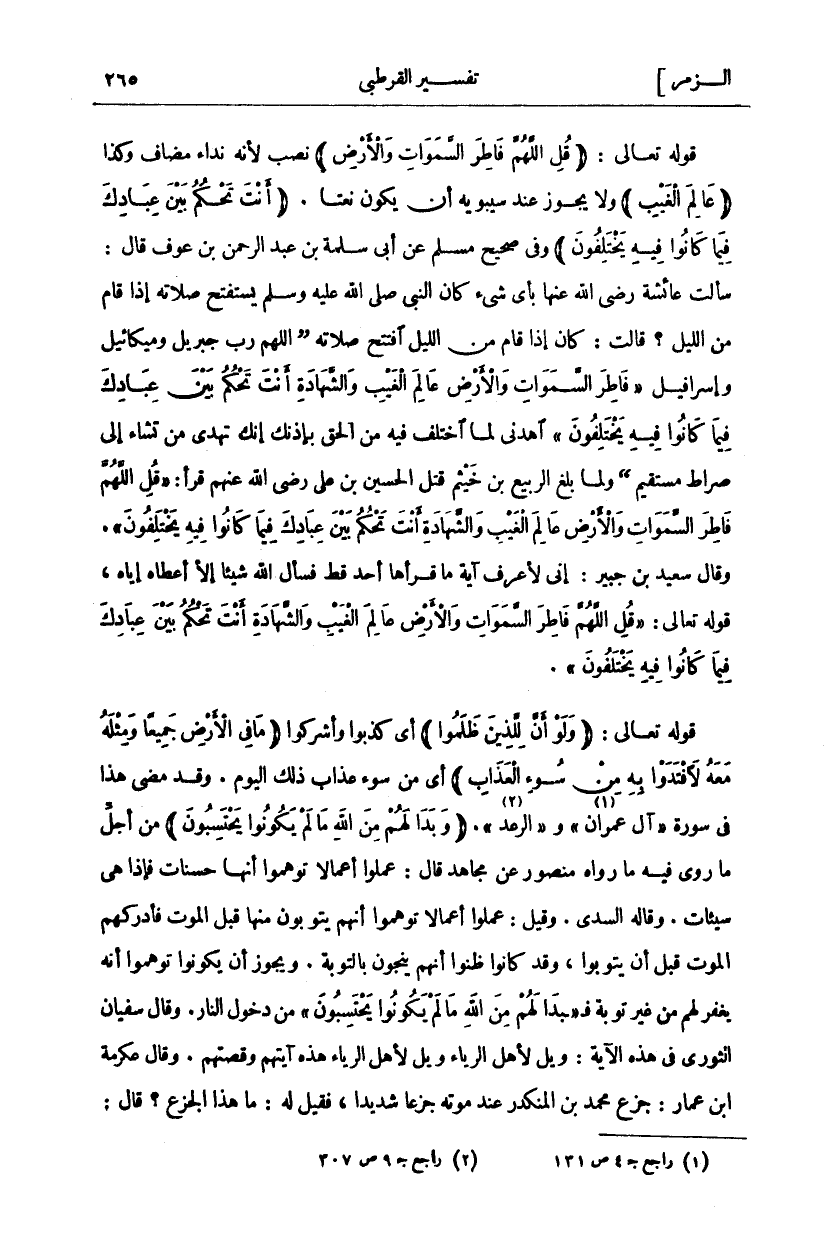 الـــزمر ] تفســـير القرطبي ٢٦٥
قوله تعـالى : ﴿ قُلِ اللَّهُمَّ فَاطِرَ السَّمَوَاتِ وَالْأَرْضِ ﴾ نصب لأنه نداء مضاف وكذا
﴿ عَالِمَ الْغَيْبِ ﴾ ولا يجـوز عند سيبويه أن يكون نعتا . ﴿ أَنْتَ تَحْكُمُ بَيْنَ عِبَـادِكَ
فِيمَا كَانُوا فِيـهِ يَخْتَلِفُونَ ﴾ وفى صحيح مسـلم عن أبى سـلمة بن عبد الرحمن بن عوف قال :
سألت عائشة رضى الله عنها بأى شىء كان النبى صلى الله عليه وسـلم يستفتح صلاته إذا قام
من الليل ؟ قالت : كان إذا قام من الليل ٱفتتح صلاته ” اللهم رب جبريل وميكائيل
وإسرافيـل « فَاطِرَ السَّـمَوَاتِ وَالْأَرْضِ عَالِمَ الْغَيْبِ وَالشَّهَادَةِ أَنْتَ تَحْكُمُ بَيْنَ عِبَـادِكَ
فِيمَا كَانُوا فِيـهِ يَخْتَلِفُونَ » ٱهدنى لمـا ٱختلف فيه من الحق بإذنك إنك تهدى من تشاء إلى
صراط مستقيم “ ولمـا بلغ الربيع بن خَيْثم قتل الحسين بن على رضى الله عنهم قرأ : « قُلِ اللَّهُمَّ
فَاطِرَ السَّمَوَاتِ وَالْأَرْضِ عَالِمَ الْغَيْبِ وَالشَّهَادَةِ أَنْتَ تَحْكُمُ بَيْنَ عِبَادِكَ فِيمَا كَانُوا فِيهِ يَخْتَلِفُونَ » .
وقال سعيد بن جبير : إنى لأعرف آية ما قـرأها أحد قط فسأل الله شيئا إلا أعطاه إياه ،
قوله تعالى : « قُلِ اللَّهُمَّ فَاطِرَ السَّمَوَاتِ وَالْأَرْضِ عَالِمَ الْغَيْبِ وَالشَّهَادَةِ أَنْتَ تَحْكُمُ بَيْنَ عِبَادِكَ
فِيمَا كَانُوا فِيهِ يَخْتَلِفُونَ » .
قوله تعـالى : ﴿ وَلَوْ أَنَّ لِلَّذِينَ ظَلَمُوا ﴾ أى كذبوا وأشركوا ﴿ مَا فِى الْأَرْضِ جَمِيعًا وَمِثْلَهُ
مَعَهُ لَافْتَدَوْا بِهِ مِنْ سُوءِ الْعَذَابِ ﴾ أى من سوء عذاب ذلك اليوم . وقـد مضى هذا
فى سورة « آل عمران » (١) و « الرعد » (٢) . ﴿ وَبَدَا لَهُمْ مِنَ اللَّهِ مَا لَمْ يَكُونُوا يَحْتَسِبُونَ ﴾ من أجلّ
ما روى فيـه ما رواه منصور عن مجاهد قال : عملوا أعمالا توهموا أنهـا حسنات فإذا هى
سيئات . وقاله السدى . وقيل : عملوا أعمالا توهموا أنهم يتوبون منها قبل الموت فأدركهم
الموت قبل أن يتوبوا ، وقد كانوا ظنوا أنهم ينجون بالتوبة . ويجوز أن يكونوا توهموا أنه
يغفر لهم من غير توبة فـ«ـبَدَا لَهُمْ مِنَ اللَّهِ مَا لَمْ يَكُونُوا يَحْتَسِبُونَ » من دخول النار . وقال سفيان
الثورى فى هذه الآية : ويل لأهل الرياء ويل لأهل الرياء هذه آيتهم وقصتهم . وقال عكرمة
ابن عمار : جزع محمد بن المنكدر عند موته جزعا شديدا ، فقيل له : ما هذا الجزع ؟ قال :
(١) راجع جـ ٤ ص ١٣١ (٢) راجع جـ ٩ ص ٣٠٧